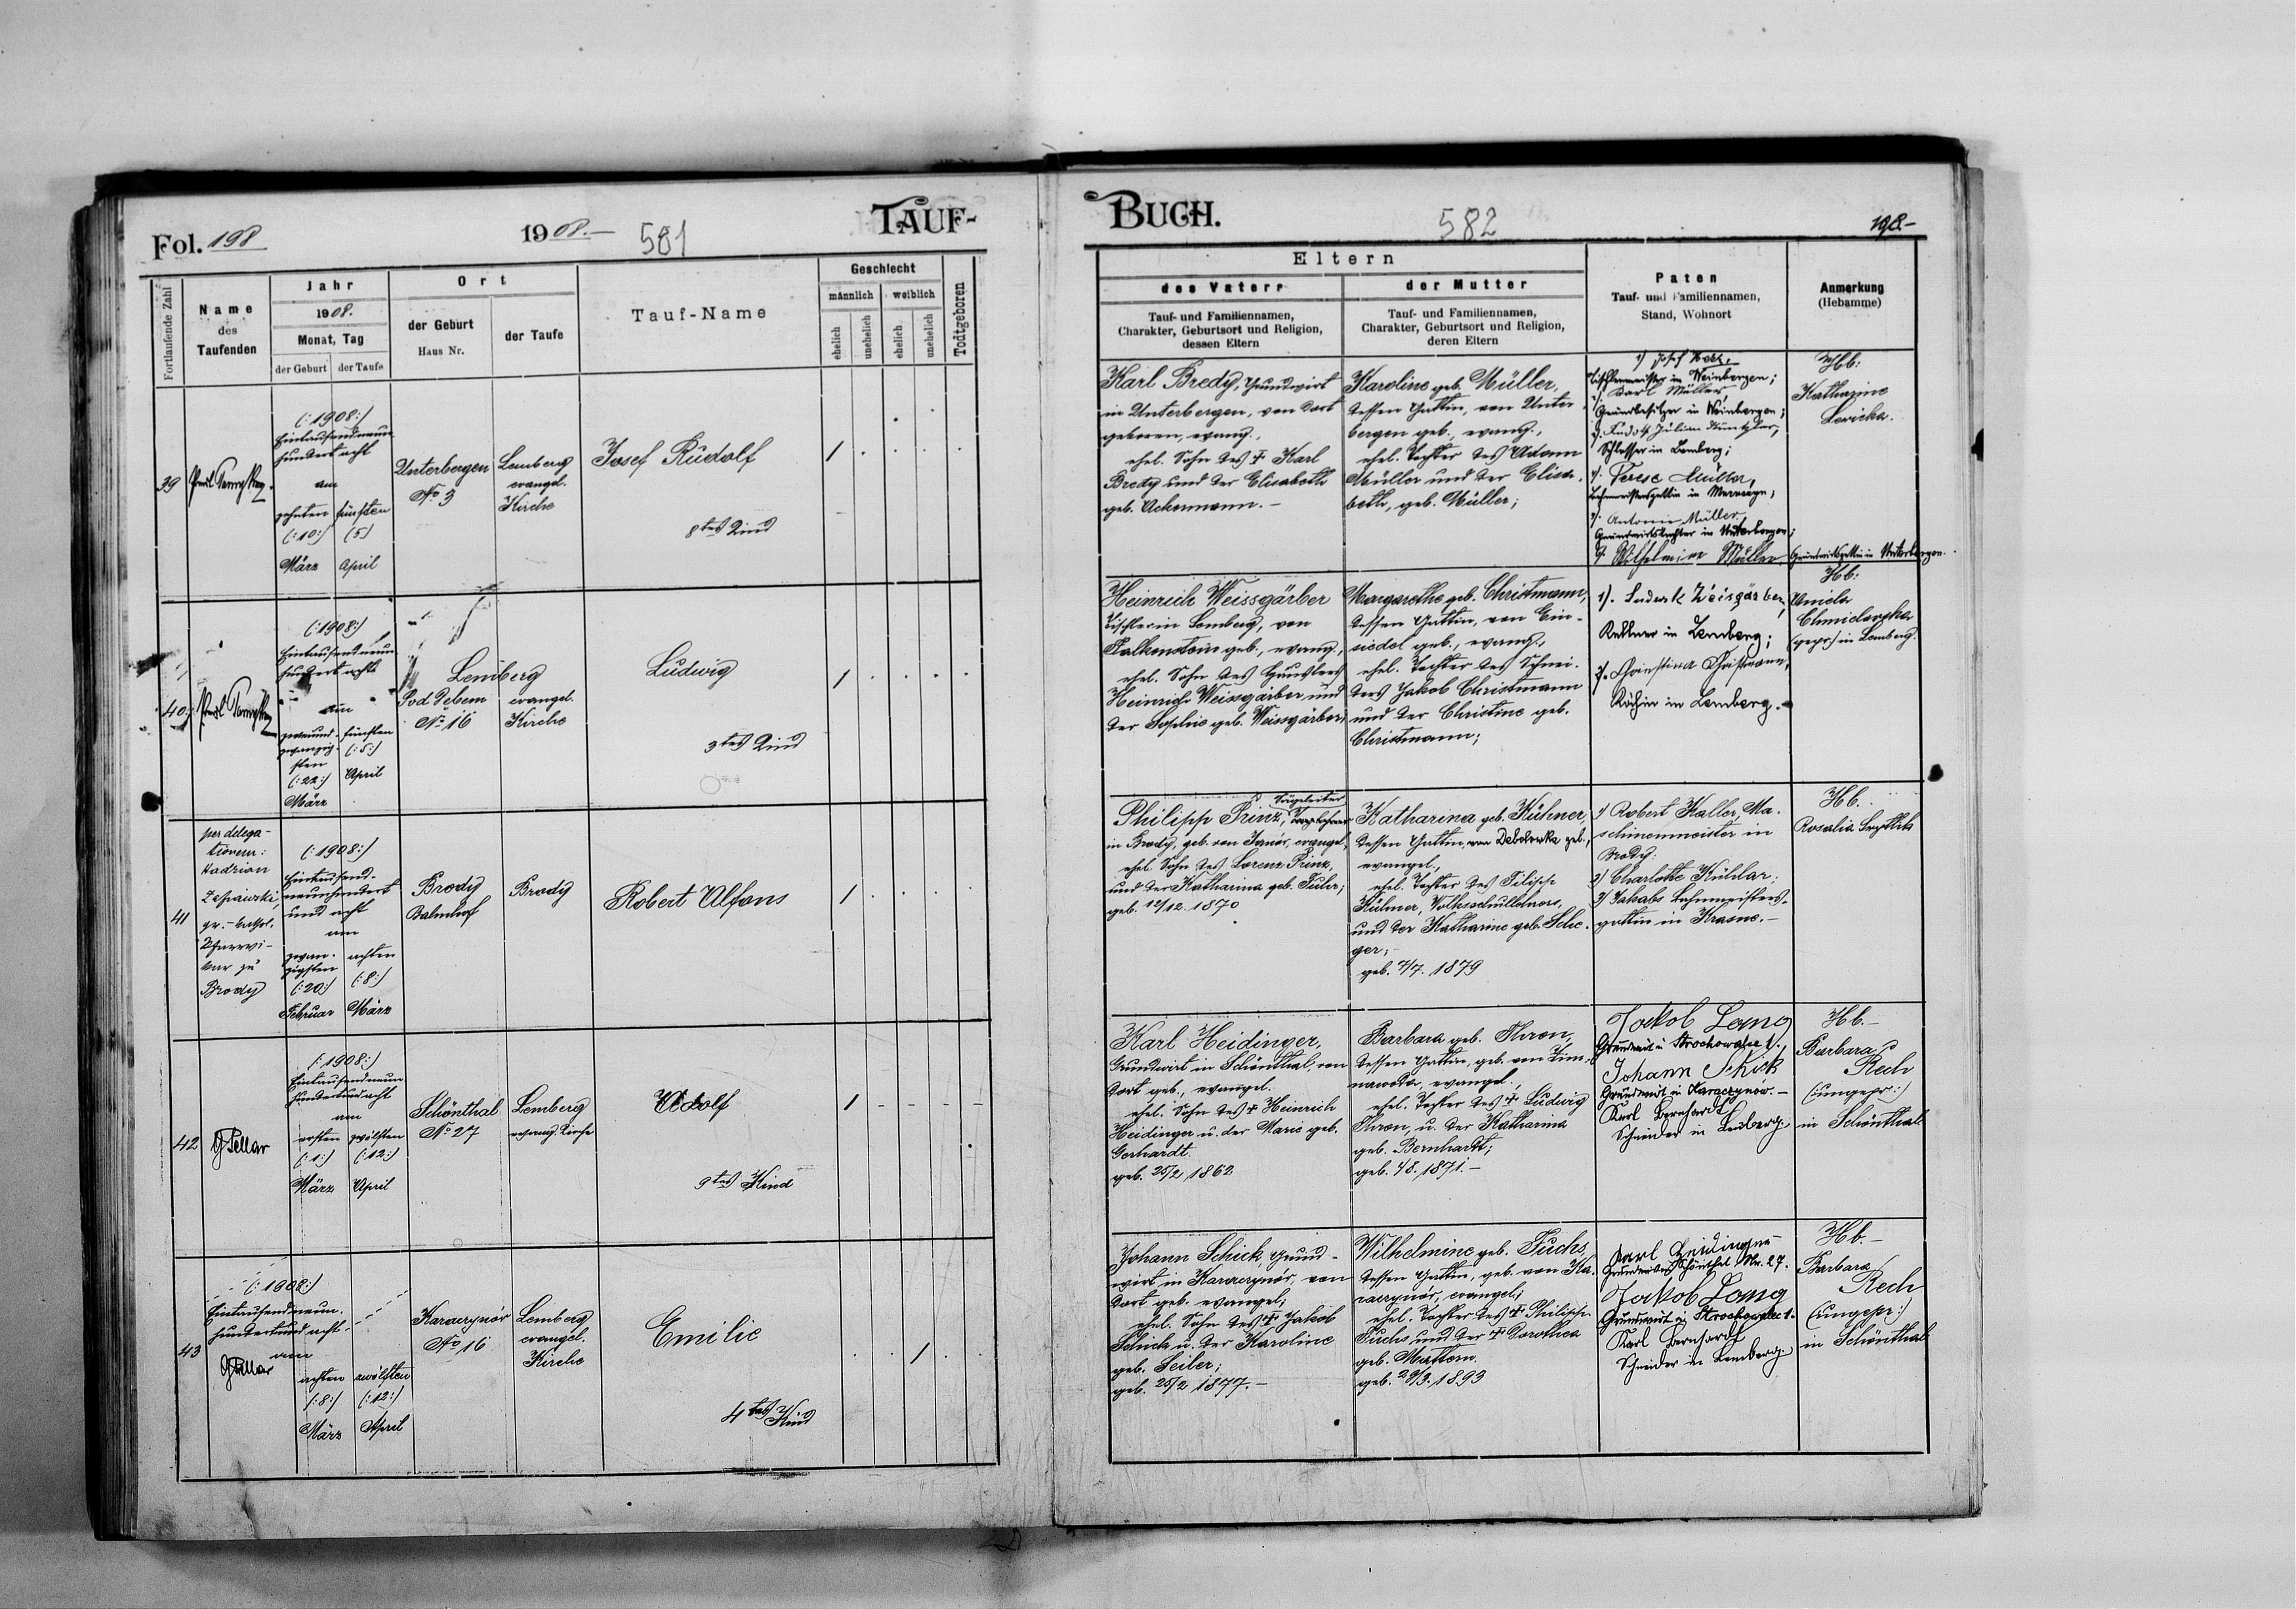 Fol. 198
1908.-
581
TAUF-
Fortlaufende Zahl
Name
des
Taufenden
Jahr
1908.
Monat, Tag
der Geburt
der Taufe
Ort
der Geburt
Haus Nr.
der Taufe
Tauf-Name
Geschlecht
männlich
weiblich
ehelich
unehelich
ehelich
unehelich
Todtgeboren
39
(:1908:)
Eintausendneun-
hundertacht
am
zehnten fünften
(:10:) (5)
März April
Unterbergen
No 3
Lemberg
evangel.
Kirche
Josef Rudolf
8tes Kind
1
40
(:1908:)
Eintausendneun-
hundertacht
am
zweiund- fünften
zwanzig- (:5:)
sten
(:22:) April
März
Lemberg
Pod Debem evangel.
No 16 Kirche
Ludwig
3tes Kind
1
41
per delega-
tionem:
Hadrian
gr.-kathol.
Pfarrvi-
kar zu
Brody
(:1908:)
Eintausend-
neunhundert
und acht
am
zwan- achten
zigsten
(:20:) (:8:)
Februar März
Brody
Bahnhof
Brody
Robert Alfons
1
42
(:1908:)
Eintausendneun-
hundertundacht
am
ersten zwölften
(:1:) (:12:)
März April
Schönthal
No 27
Lemberg
evang. Kirche
Adolf
9tes Kind
1
43
(:1908:)
Eintausendneun-
hundertundacht-
am
achten zwölften
(:8:) (:12:)
März April
Karaczynór
No 16
Lemberg
evangel.
Kirche
Emilie
4tes Kind
1
BUCH.
582
198.-
Eltern
des Vaters
Tauf- und Familiennamen,
Charakter, Geburtsort und Religion,
dessen Eltern
der Mutter
Tauf- und Familiennamen,
Charakter, Geburtsort und Religion,
deren Eltern
Paten
Tauf- und Familiennamen,
Stand, Wohnort
Anmerkung
(Hebamme)
Karl Bredy, Grundwirt
in Unterbergen, von dort
geboren, evang.,
ehel. Sohn des † Karl
Bredy und der Elisabeth
geb. Ackermann.-
Karoline geb. Müller,
dessen Gattin, von Unter-
bergen geb., evang.,
ehel. Tochter des Adam
Müller und der Elisa-
beth, geb. Müller;
1) Josef
Tischlermeister in Weinbergen;
2). Karl Müller,
Grundbesitzer in Weinbergen;
3). Rudolf Julian
Schlosser in Lemberg;
4). Terese Müller,
5). Antonie Müller,
Grundwirtstochter in Unterbergen;
6) Wilhelmine Müller, Grundwirtsgattin in Unterbergen.
Hb:
Katharine
Levicka.
Heinrich Weissgärber
Tischler in Lemberg, von
Falkenstein geb., evang.,
ehel. Sohn des
Heinrich Weissgärber und
der Sophie geb. Weissgärber;
Margarethe geb. Christmann,
dessen Gattin, von Ein-
siedel geb., evang.,
ehel. Tochter des Schnei-
ders Jakob Christmann
und der Christine geb.
Christmann;
1). Ludwik Zeisgärber,
Kellner in Lemberg;
2). Christina Christmann,
Köchin in Lemberg.
Hb:
Aniela
Chmielowska
(gepr:) in Lemberg.
Philipp Prinz,
in Brody, geb. von Janór, evangel,
ehel. Sohn des Lorenz Prinz,
und der Katharina geb. Fuhr;
geb. 12/12. 1870
Katharina geb. Kühner,
dessen Gattin, von geb.,
evangel,
ehel. Tochter des Filipp
Kühner, Volksschullehrers,
und der Katharine geb. Sche-
ger;-
geb. 7/7. 1879
1) Robert Kaller, Ma-
schinenmeister in
Brody:
2) Charlotte Kühlar;
3) Jakobs Bahnmeisters-
gattin in Krasne.-
Hb.
Rosalia
Karl Heidinger,
Grundwirt in Schönthal, von
dort geb., evangel.
ehel. Sohn des † Heinrich
Heidinger u. der Marie geb.
Gerhardt.
geb. 25/2 1862
Barbara geb. Thron,
dessen Gattin, geb. von Zim-
nawoda, evangel.,
ehel. Tochter des † Ludwig
Thron, u. der Katharina
geb. Bernhardt;
geb. 4/8. 1871.-
Jakob Lang
Grundwirt in 1.
Johann Schick
Grundwirt in Karaczynów.-
Karl Bernhardt
Schneider in Lemberg
Hb.-
Barbara
Rech
(:ungepr:)
in Schönthal
Johann Schick, Grund-
wirt in Karaczynór, von
dort geb. evangel;
ehel. Sohn des † Jakob
Schick u. der Karoline
geb. Seiler;
geb. 25/2 1877.-
Wilhelmine geb. Fuchs,
dessen Gattin, geb. von Ka-
raczynór, evangel;
ehel. Tochter des † Philipp
Fuchs und der † Dorothea
geb. Mattern.
geb. 29/3. 1893
Karl Heidinger
Grundwirt in Schönthal Nr. 27.
Jakob Lang
Grundwirt in 1.
Karl Bernhardt
Schneider in Lemberg
Hb.-
Barbara
Rech
(:ungepr:)
in Schönthal